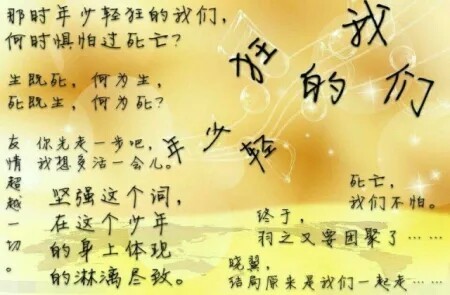 那时年少轻狂的我们，
何时惧怕过死亡？
生既死，何为生，
死既生，何为死？
友情超越一切。
你先走一步吧，
我想多活一会儿。
坚强这个词，
在这个少年
的身上体现
的淋漓尽致。
年少轻狂的我们
死亡，
我们不怕。
终于，
羽之又要团聚了……
晓翼，
结局原来是我们一起走……